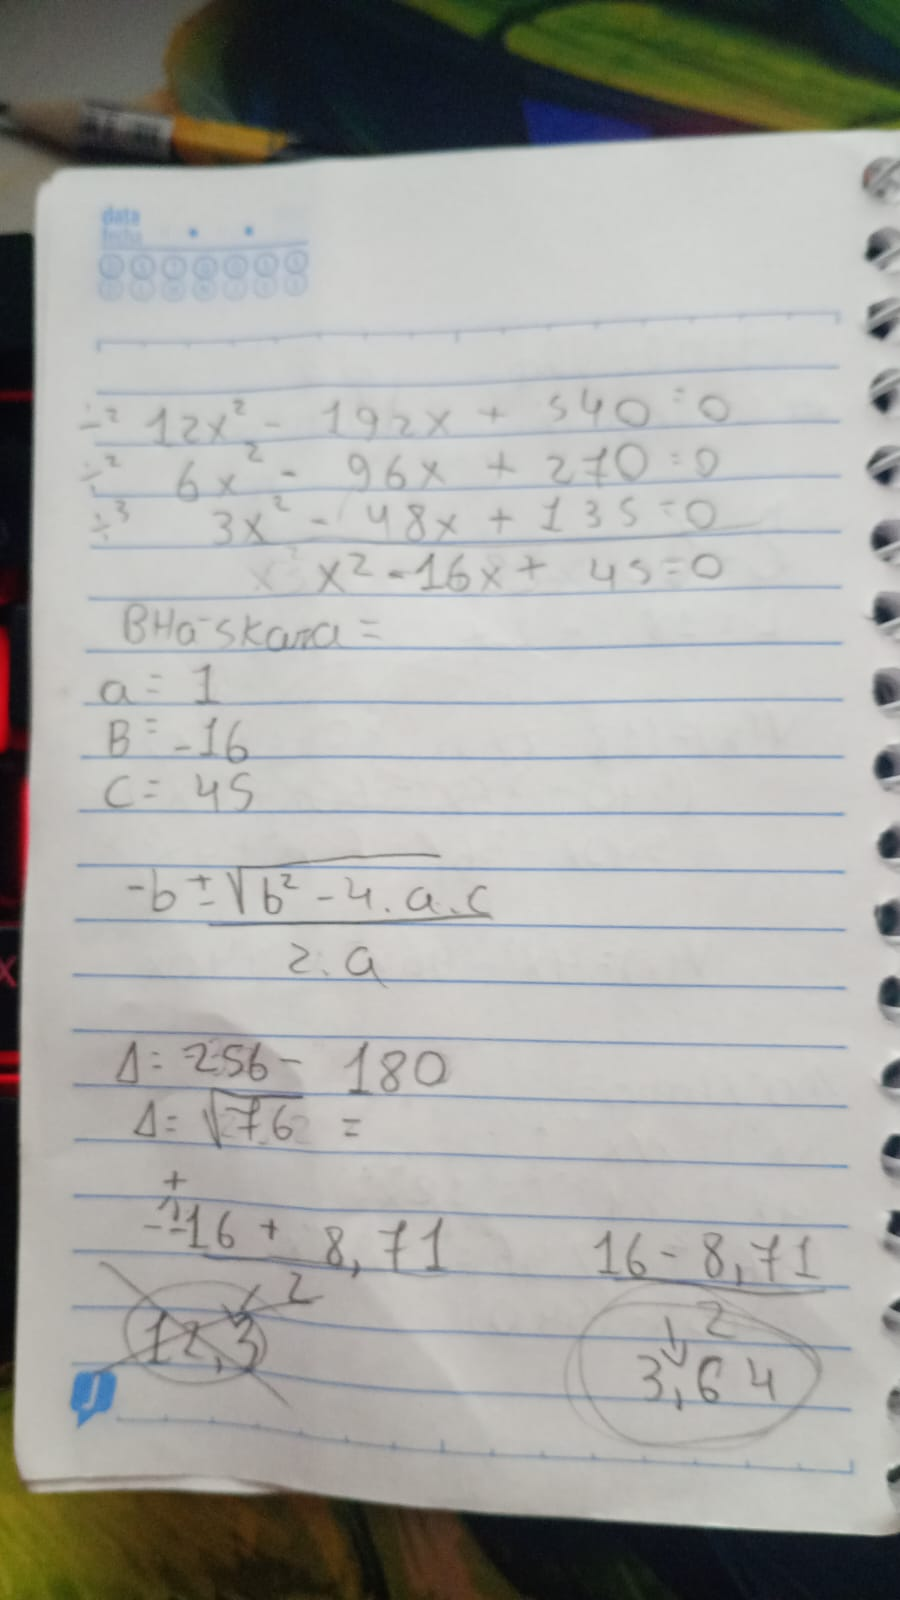 data
fecha
÷2 12x² - 192x + 540 = 0
÷2 6x² - 96x + 270 = 0
÷3 3x² - 48x + 135 = 0
x² - 16x + 45 = 0
BHa-skara =
a = 1
B = -16
C = 45
-b ± √b² - 4 . a . c
2 . a
Δ = 256 - 180
Δ = √76 =
+
--16 + 8,71 16 - 8,71
2 2
12,3 3,64